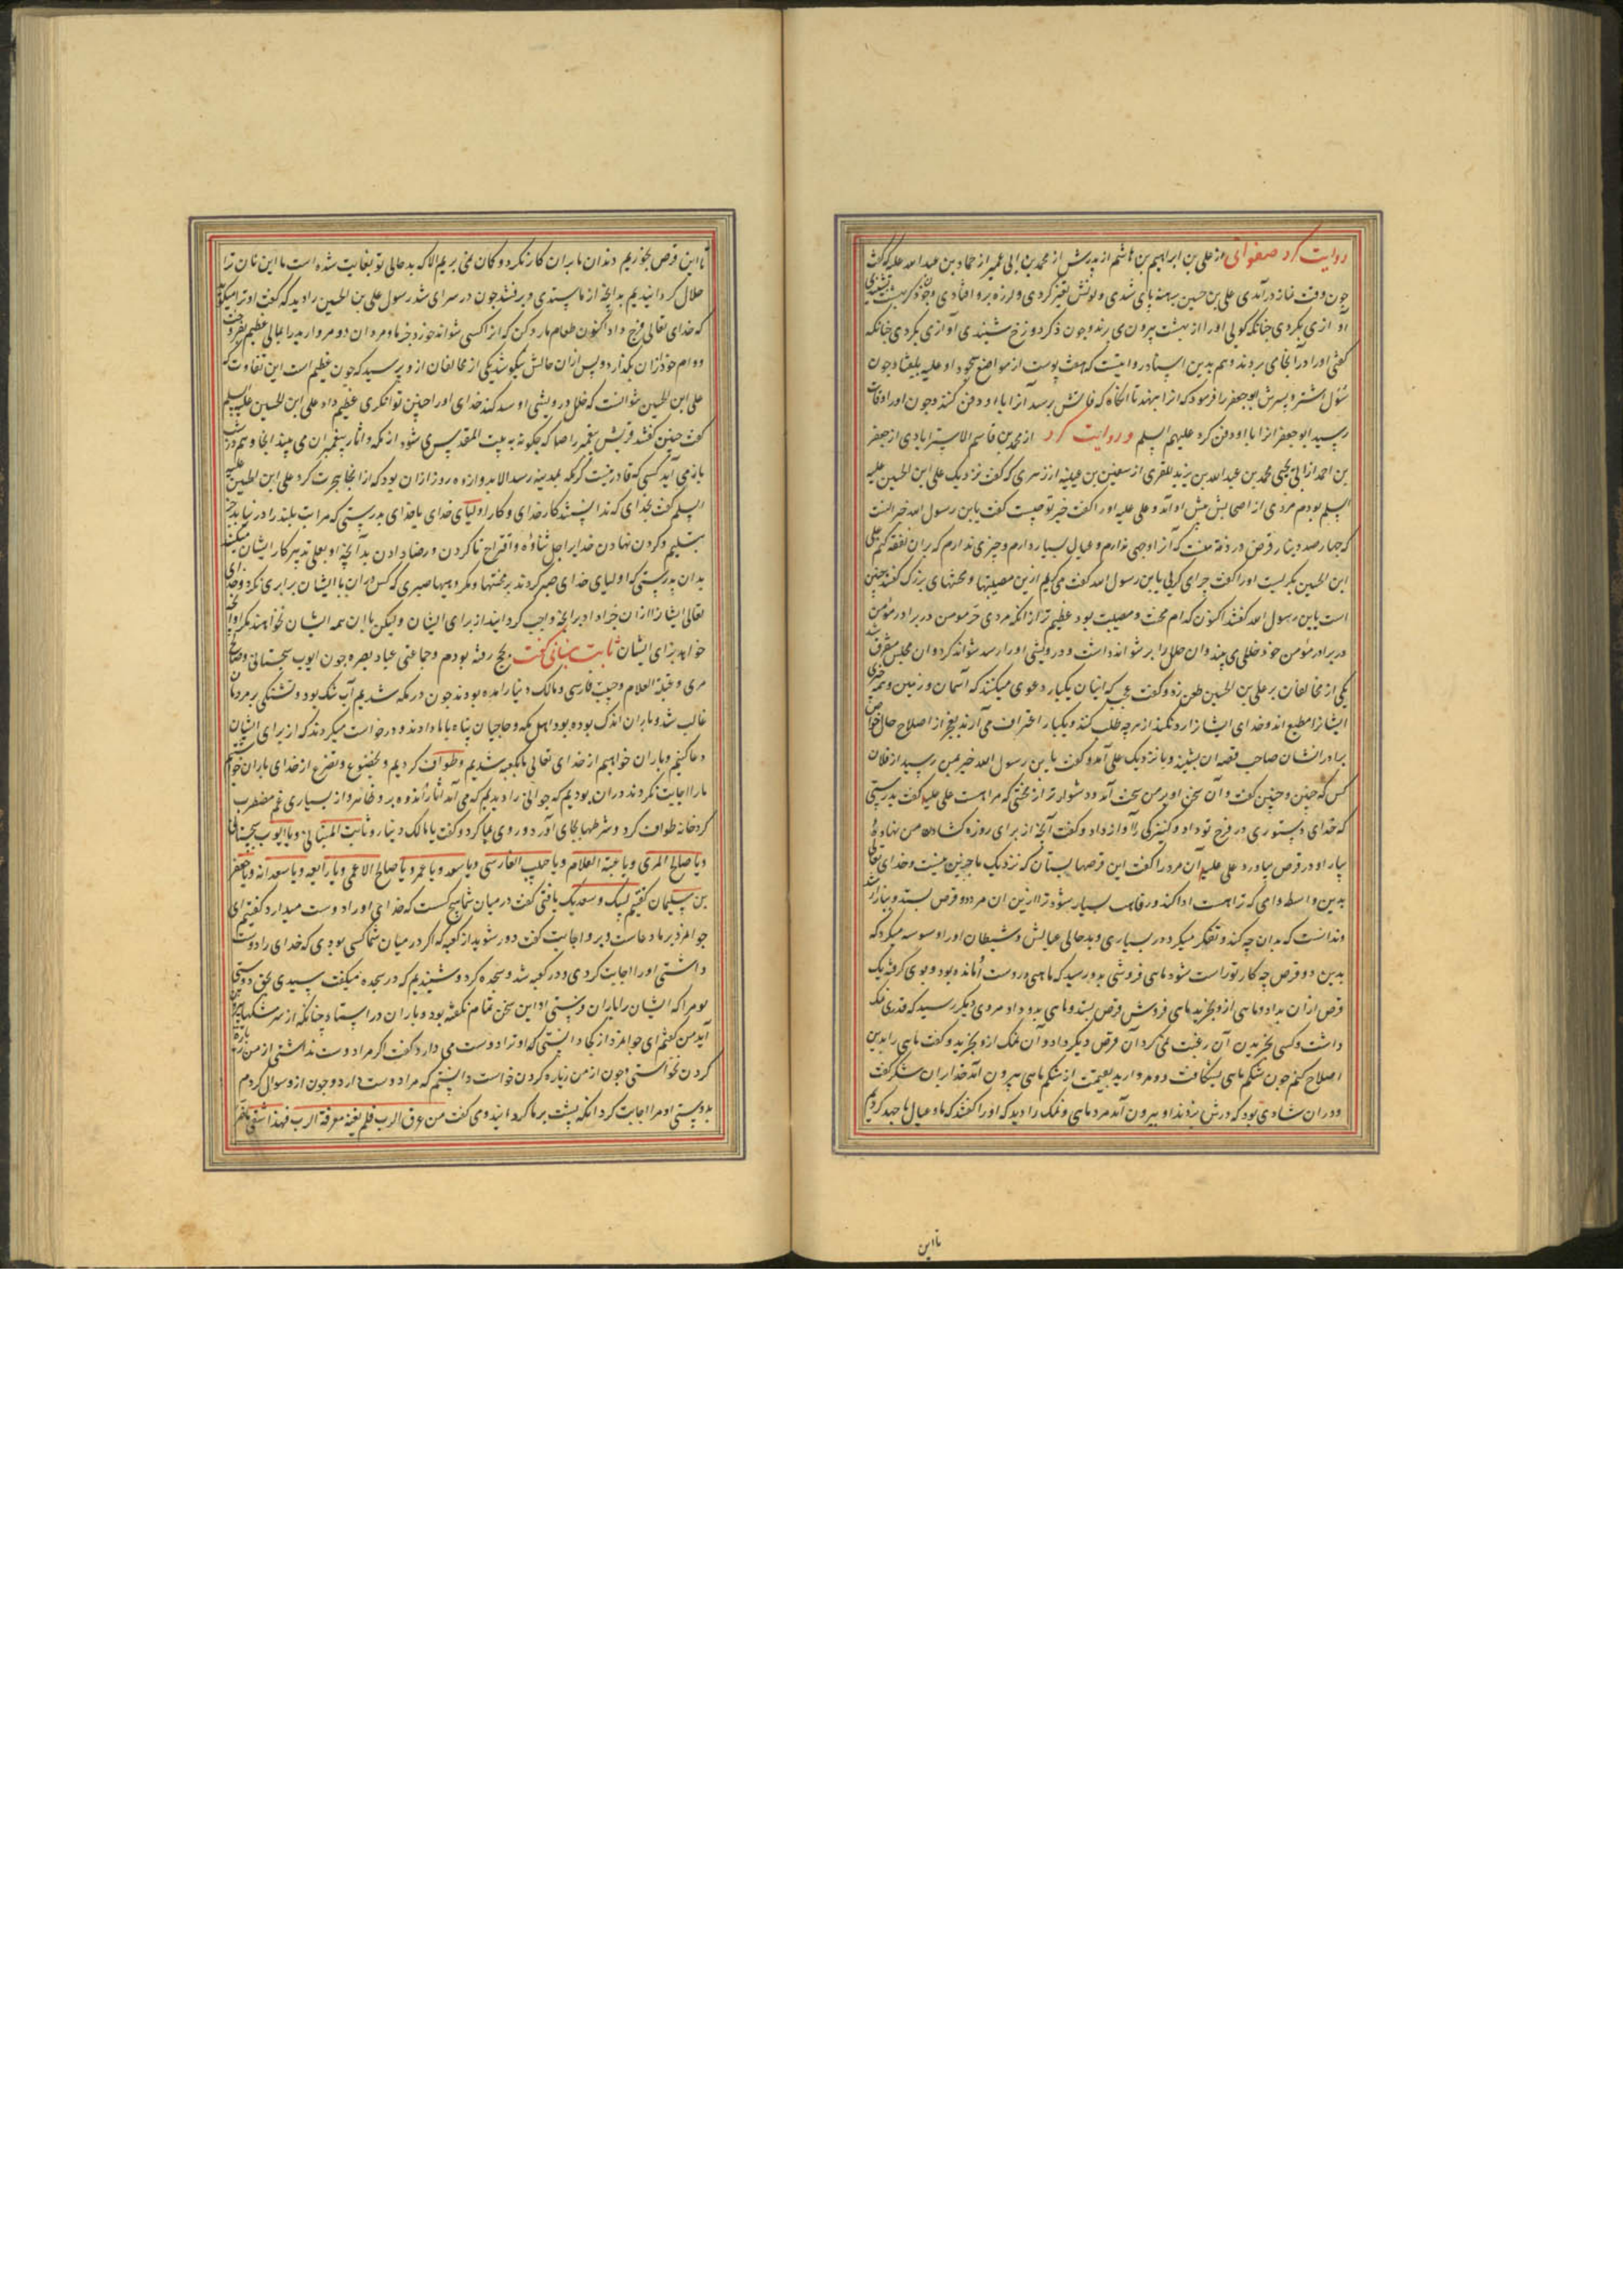 روایت کرد صفوانی از علی بن ابراهیم بن هاشم از پدرش از محمد بن ابی عمیر از حماد بن عبدالله علیه که گفت
چون وقت نماز درآمدی علی بن حسین برهنه پای شدی و لونش تغیر کردی و لرزه برو افتادی و چون ذکر بهشت شنیدی
آوازی بکردی چنانکه کویی او را از بهشت بیرون می برند و چون ذکر دوزخ شنیدی آوازی بکردی چنانکه
کفتی او را در آنجا می بردند و هم بدین اسناد روایتست که هفت پوست از مواضع سجود او علیه بیفتاد چون
رسید ابوجعفر انرا با او دفن کرد علیهم السلم و روایت کرد از محمد بن قاسم الاسترابادی از جعفر
بن احمد از ابی یحیی محمد بن عبدالله بن یزید المقری از سعین بن عیینه از زهری که گفت نزدیک علی ابن الحسین علیه
السلم بودم مردی از اصحابش پیش او آمد و علی علیه او را کفت خبر تو چیست کفت یابن رسول الله خبر انست
که چهارصد دینار قرض در ذمه منست که آنرا وجهی ندارم و عیال بسیار دارم و چیزی ندارم که بران نفقه کنم علی
ابن الحسین بکریست او را کفت چرا می کریی یابن رسول الله کفت می کریم ازین مصیبتها و محنتهای بزرک کفتند چنین
است یابن رسول الله کفتند اکنون کدام محنت و مصیبت بود عظیم تر از انکه مردی حر مومن در برادر مؤمن
در برادر مؤمن خود خللی می بیند و ان خلل را بر نتواند داشت و درویشی او را رسد نتواند کرد و ان مجلس متفرق شد
یکی از مخالفان بر علی بن الحسین طعن زد و کفت عجب که اینان یکبار دعوی میکنند که آسمان و زمین و همه چیزی
ایشانرا مطیع اند و خدای ایشانرا رد نکند از هرچه طلب کنند و یکبار اعتراف می آرند بعجز از اصلاح حال خواص
برادر ایشان صاحب قصه ان بشنید و با نزدیک علی آمد و کفت یابن رسول الله خبر بمن رسید از فلان
کس که چنین و چنین کفت و آن سخن او بر من سخت آمد و دشوارتر از محنتی که مراهست علی علیه کفت بدرستی
که خدای دستوری در فرج تو داد و کنیزکی را آواز داد و کفت آنچه از برای روزه کشادن من نهاده
بیار او دو قرص بیاورد علی علیه آن مرد را کفت این قرصها بستان که نزدیک ما جز این نیست و خدای تعالی
بدین واسطه وامی که تراهست ادا کند و رفاهت بسیار شود ترا ازین ان مرد دو قرص بستد و ببازار شد
و ندانست که بدان چه کند و تفکر میکرد در بسیاری و بدحالی عیالش و شیطان او را وسوسه میکرد که
بدین دو قرص چه کار تو راست شود ماهی فروشی بدو رسید که ماهی در دست او مانده بود و بوی کرفته یک
قرص ازان بداد و ماهی ازو بخرید ماهی فروش قرص بستد و ماهی بدو داد و مردی دیکر رسید که قدری نمک
داشت و کسی بخریدن آن رغبت نمی کرد آن قرص دیکر داد و آن نمک ازو بخرید و کفت ماهی را بدین
اصلاح کنم چون شکم ماهی بشکافت دو مروارید بقیمت از شکم ماهی بیرون آمد خدا را بران شکر کفت
و دران شادی بود که درش بزدند او بیرون آمد مرد ماهی و نمک را دید که او را کفتند که ما و عیال ما جهد کردیم
تا این
تا این قرص بخوریم دندان ما بران کار نکرد و کمان نمی بریم الا که بدحالی تو بغایت شده است ما این نان ترا
حلال کردانیدیم بدانچه از ما بستدی و برفتند چون در سرای شد رسول علی بن الحسین را دید که کفت او ترا میکوید
که خدای تعالی فرج داد اکنون طعام ما رد کن که انرا کسی نتواند خورد جز ما و مرد ان دو مروارید را بمالی عظیم بفروخت
و وام خود ازان بکذارد و پس ازان حالش نیکو شد یکی از مخالفان ازو پرسید که چون عظیم است این تفاوت که
علی ابن الحسین نتوانست که خلل درویشی او سد کند خدای او را چنین توانکری عظیم داد علی ابن الحسین علیه السلم
کفت چنین کفتند قریش پیغمبر را صا که چکونه به بیت المقدس می شود از مکه و اثار پیغمبران می بیند انجا و هم در شب
باز می آید کسی که قادر نیست که از مکه بمدینه رسد الا بدوازده روز ازان بود که از انجا هجرت کرد علی ابن الحسین علیه
السلم کفت بخدای که ندانستند کار خدای و کار اولیای خدای با خدای بدرستی که مراتب بلند را درنیابد جز
بتسلیم و کردن نهادن خدایرا جل ثناؤه و اقتراح ناکردن و رضا دادن بدآنچه او بعلی تدبیر کار ایشان میکند
بدان بدرستی که اولیای خدای صبر کردند بر محنتها و مکروهها صبری که کس دران با ایشان برابری نکرد و خدای
تعالی ایشانرا ازان جزا داد برانچه واجب کردانید از برای ایشان و لیکن با ان همه ایشان نخواهند مکر انچه او
خواهد برای ایشان ثابت بنانی کفت بحج رفته بودم و جماعتی عباد بصره چون ایوب سجستانی و صالح
مری و عتبة الغلام و حبیب فارسی و مالک دینار امده بودند چون در مکه شدیم آب تنک بود و تشنکی بر مردمان
غالب شد و باران اندک بوده بود اهل مکه و حاجیان پناه با ما دادند و درخواست میکردند که از برای ایشان
دعا کنیم و باران خواهیم از خدای تعالی ما بکعبه شدیم و طواف کردیم و بخضوع و تضرع از خدای باران خواستیم
ما را اجابت نکردند دران بودیم که جوانی را دیدیم که می آمد اثار اندوه برو ظاهر و از بسیاری غم مضطرب
کرد خانه طواف کرد و شرطها بجای آورد و روی بما کرد و کفت یا مالک دینار و ثابت البنانی و یا ایوب سجستانی
و یا صالح المری و یا عتبة الغلام و یا حبیب الفارسی و یا سعد و یا عمر و یا صالح الاعمی و یا رابعه و یا سعدانه و یا جعفر
بن سلیمان کفتیم لبیک و سعدیک یا فتی کفت در میان شما هیچ کست که خدای او را دوست میدارد کفتیم ای
جوانمرد بر ما دعاست و برو اجابت کفت دور شوید از کعبه که اکر در میان شما کسی بودی که خدای را دوست
داشتی او را اجابت کردی و در کعبه شد و سجده کرد و شنیدیم که در سجده میکفت سیدی بحق دوستی
تو مرا که ایشان را باران فرستی او این سخن تمام نکفته بود و باران در ایستاد چنانکه از سر مشکها بیرون
آید من کفتم ای جوانمرد از کجا دانستی که او ترا دوست می دارد کفت اکر مرا دوست نداشتی از من زیاره
کردن نخواستی و چون از من زیاره کردن خواست دانستم که مرا دوست دارد و چون ازو سوال کردم
بدوستی او مرا اجابت کرد انکه پشت بر ما کردانید و می کفت من عرف الرب فلم یغنه معرفة الرب فهذا شقی